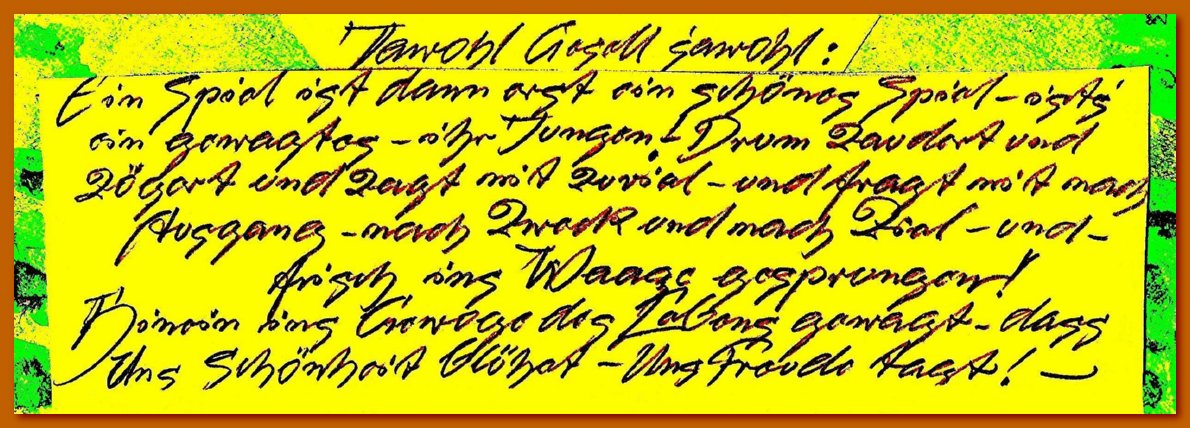 Jawohl Gesell jawohl:
Ein Spiel ist dann erst ein schönes Spiel – ists
ein gewagtes – ihr Jungen! – Drum Zaudert und
Zögert und Zagt nit Zuviel – und fragt nit nach
Ausgang – nach Zweck und nach Ziel – und –
frisch ins Waage gesprungen!
Hinein ins Gewoge des Lebens gewagt – dass
Uns Schönheit blühet – Uns Freude tagt! –